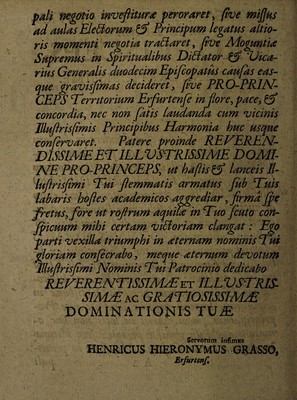 pali negotio investituræ peroraret, sive missus
ad aulas Electorum & Principum legatus altio-
ris momenti negotia tractaret, sive Moguntiæ
Supremus in Spiritualibus Dictator & Vica-
rius Generalis duodecim Episcopatûs causas eas-
que gravissimas decideret, sive PRO-PRIN-
CEPS Territorium Erfurtense in flore, pace, &
concordia, nec non satis laudanda cum vicinis
Illustrissimis Principibus Harmonia huc usque
conservaret. Patere proinde REVEREN-
DISSIME ET ILLVSTRISSIME DOMI-
NE PRO-PRINCEPS, ut hastis & lanceis Il-
lustrissimi Tui stemmatis armatus sub Tuis
labaris hostes academicos aggrediar, firmâ spe
fretus, fore ut rostrum aquilæ in Tuo scuto con-
spicuum mihi certam victoriam clangat : Ego
parti vexilla triumphi in æternam nominis Tui
gloriam consecrabo, meque æternum devotum
Illustrissimi Nominis Tui Patrocinio dedicabo
REVERENTISSIMÆ ET ILLVSTRIS-
SIMÆ AC GRATIOSISSIMÆ
DOMINATIONIS TUÆ
Servorum infimus
HENRICUS HIERONYMUS GRASSO,
Erfurtens.